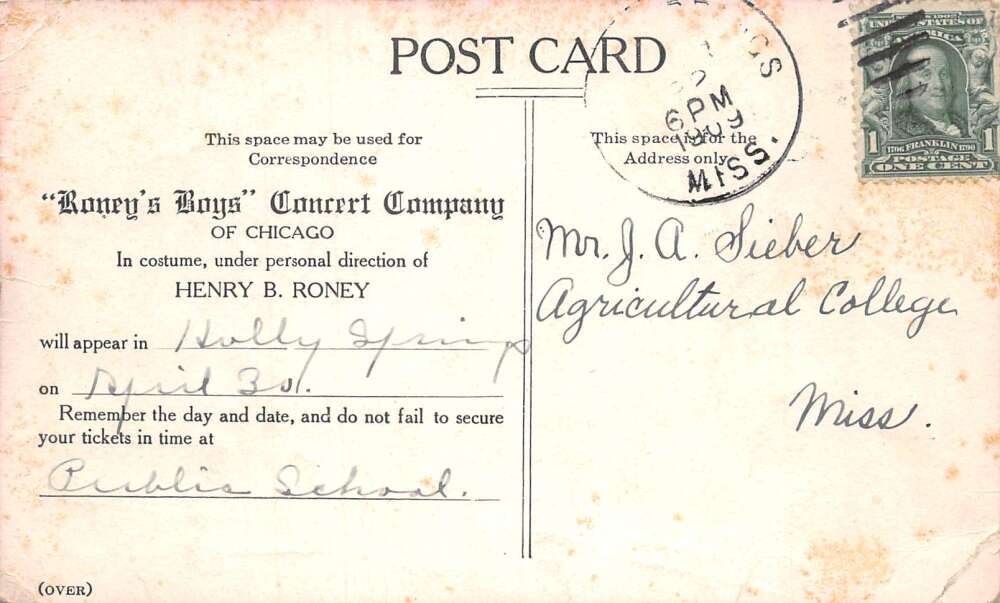 POST CARD
This space may be used for
Correspondence
"Roney's Boys" Concert Company
OF CHICAGO
In costume, under personal direction of
HENRY B. RONEY
will appear in Holly Springs
on April 30.
Remember the day and date, and do not fail to secure
your tickets in time at
Public School.
(OVER)
This space is for the
Address only
6 PM
1909
MISS.
1902
UNITED STATES OF
AMERICA
1 1706 FRANKLIN 1790 1
POSTAGE
ONE CENT
Mr. J. A. Sieber
Agricultural College
Miss.